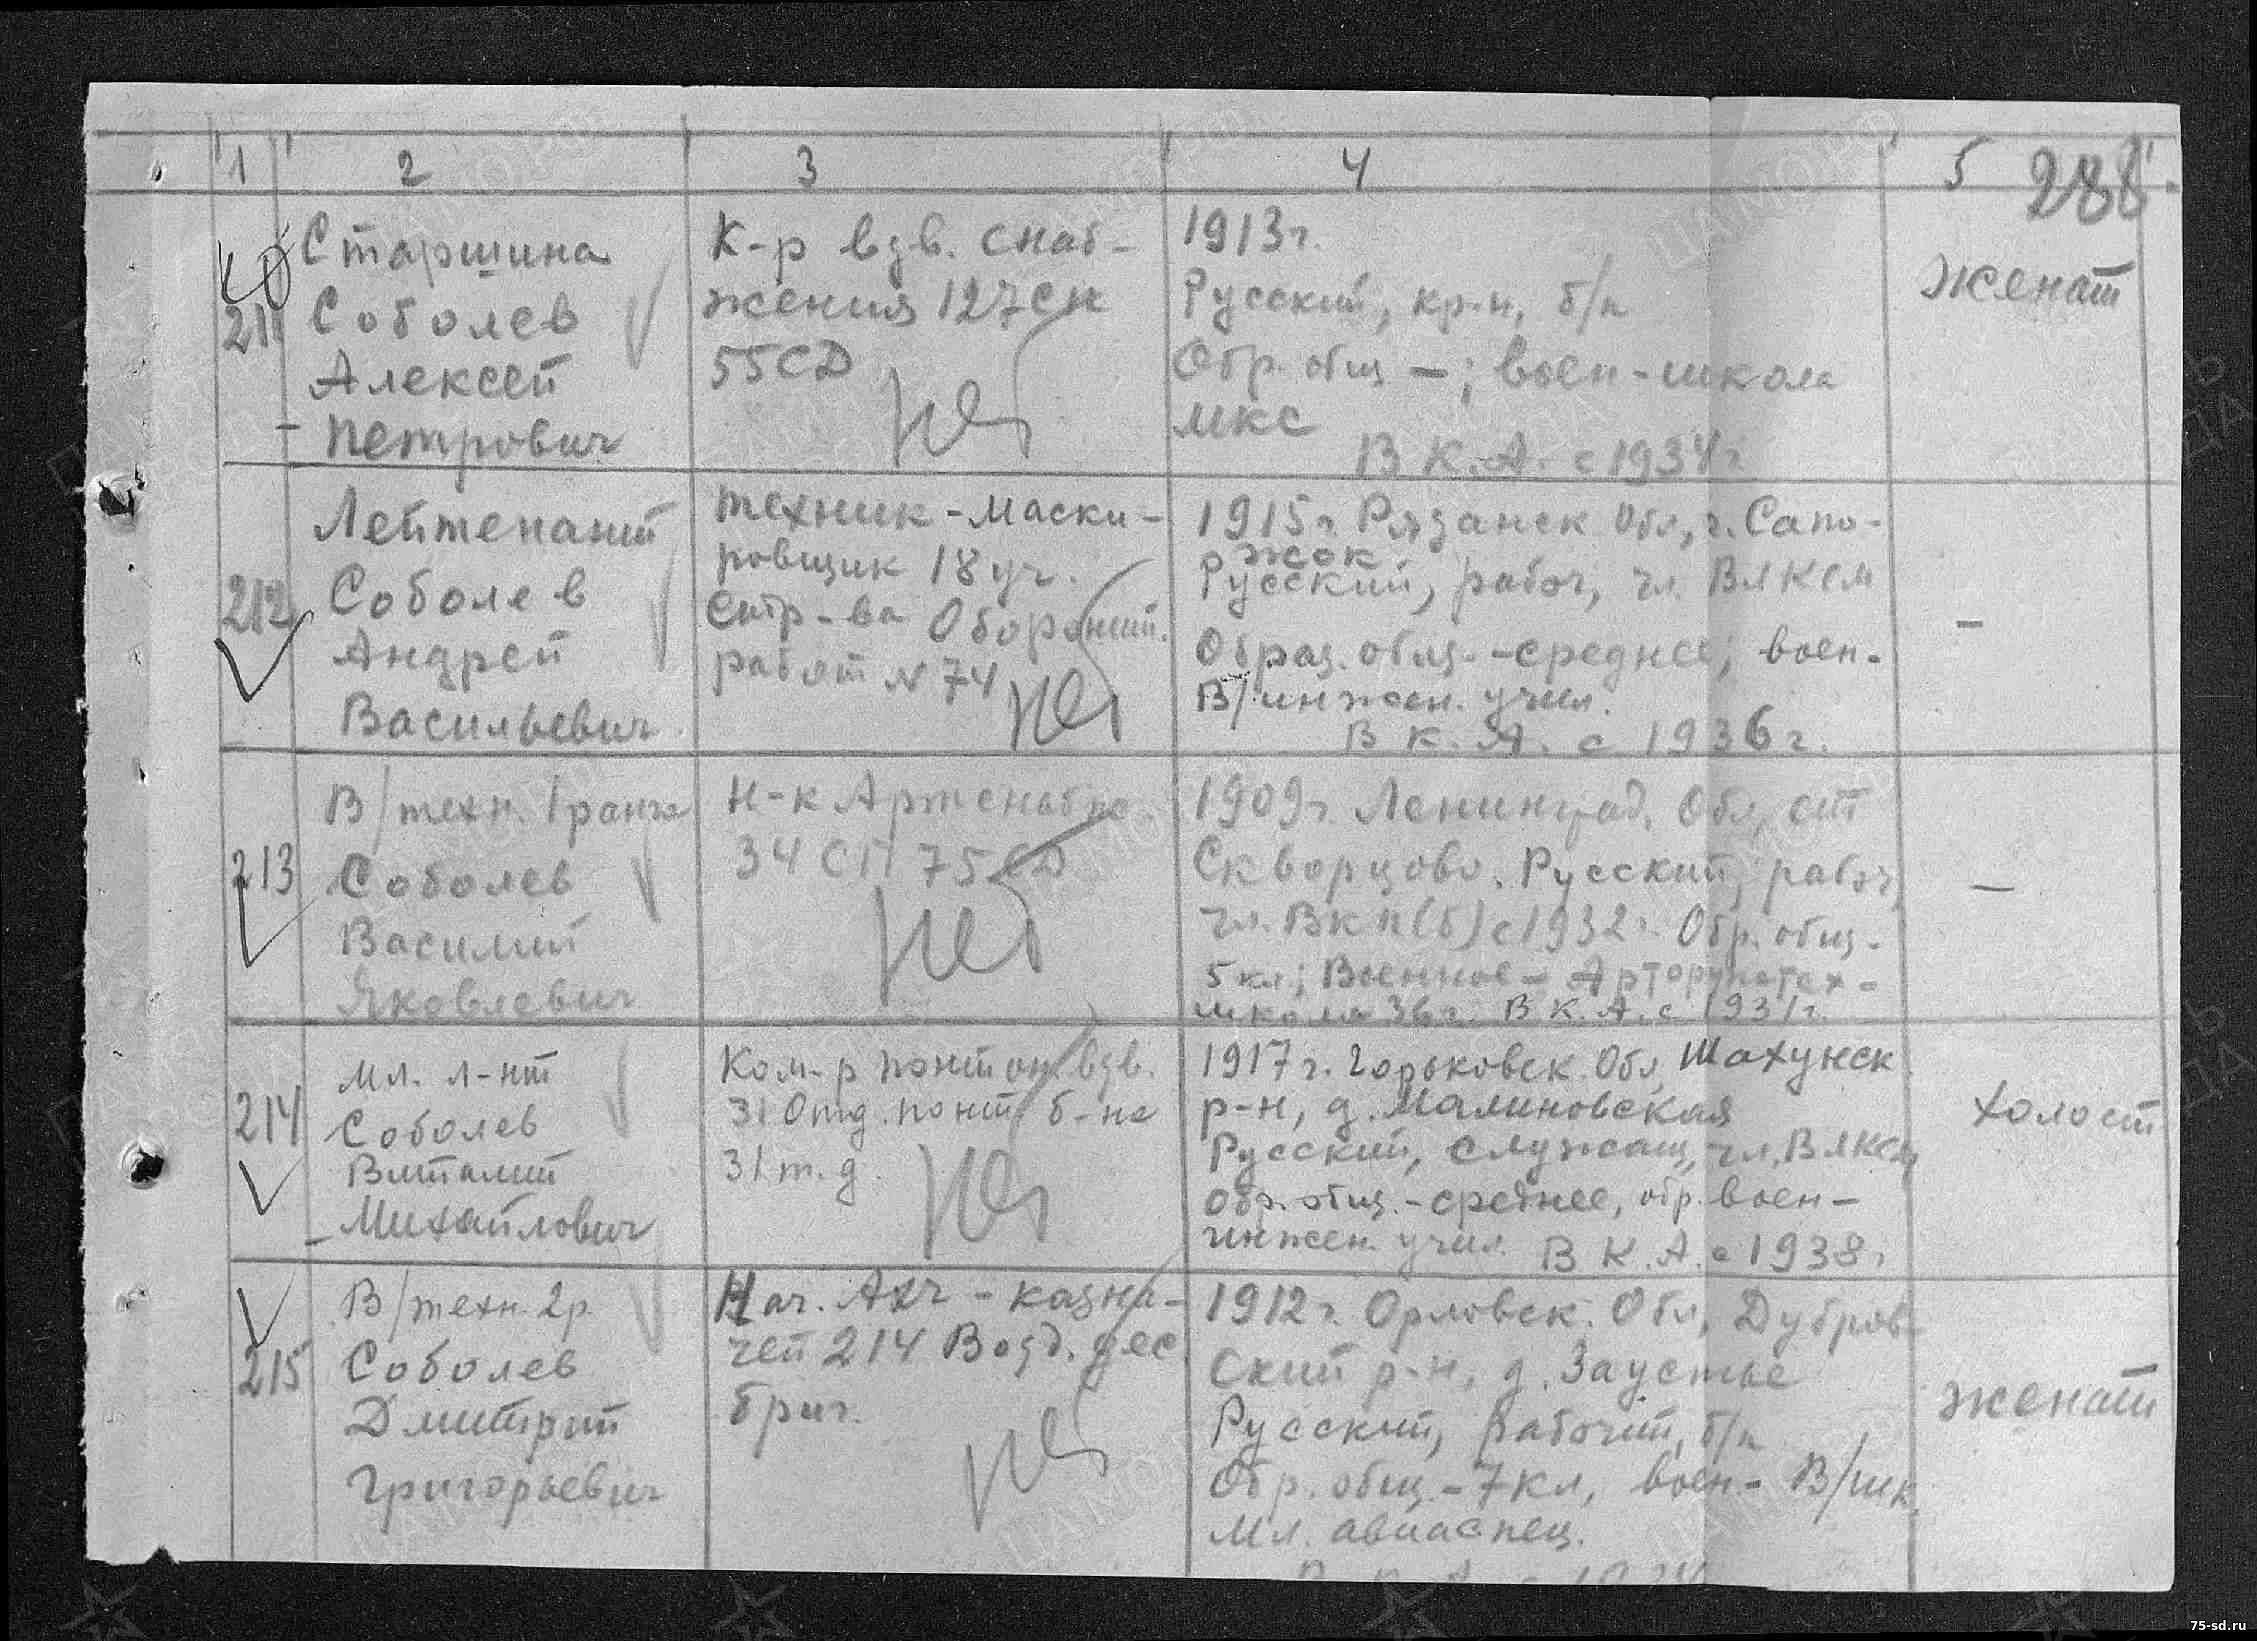 1 2 3 4 5 288
Старшина
211 Соболев
Алексей
Петрович
К-р взв. снаб-
жения 127 сп
55 СД
1913 г.
Русский, кр-н, б/п
Обр. общ - ; воен - школа
МКС
В К. А. с 1934 г
женат
212
Лейтенант
Соболев
Андрей
Васильевич
техник - маски-
ровщик 18 уч.
Стр-ва Оборонит.
работ № 74
1915 г. Рязанск Обл, г. Сапо-
жок
Русский, рабоч, чл. ВЛКСМ
Образ. общ. - среднее; воен.
В/инжен. учил.
В К. А. с 1936 г.
-
213
В/техн. 1 ранга
Соболев
Василий
Яковлевич
Н-к Артснабже.
34 СП 75 СД
1909 г. Ленинград. Обл, ст
Скворцово. Русский, рабоч,
чл. ВКП(б) с 1932 г. Обр. общ.
5 кл; Военное - Арторужтех-
школа 36 г. В К. А. с 1931 г.
—
214
Мл. л-нт
Соболев
Виталий
Михайлович
Ком-р понтон. взв.
31 Отд. понт б-на
31 т. д.
1917 г. Горьковск. Обл, Шахунск
р-н, д. Малиновская
Русский, служащ, чл. ВЛКСМ,
Обр. общ. - среднее, обр. воен -
инжен. учил. В К. А. с 1938 г
холост
215
В/техн. 2 р.
Соболев
Дмитрий
Григорьевич
Нач. АХЧ - казна-
чей 214 Возд. дес
бриг.
1912 г. Орловск. Обл, Дубров-
ский р-н, д. Заустье
Русский, рабочий, б/п
Обр. общ. - 7 кл, воен - В/шк.
Мл. авиаспец.
женат
75-sd.ru